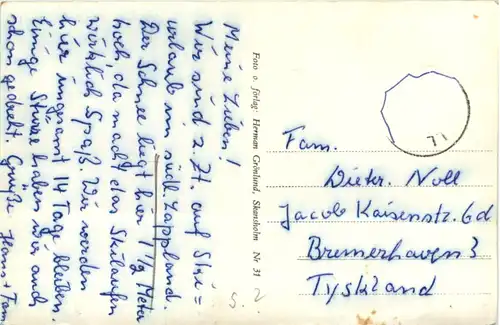 Meine Lieben!
Wir sind z. Zt. auf Ski=
urlaub in südl. Lappland.
Der Schnee liegt hier 1 1/2 Meter
hoch, da macht das Skilaufen
wirklich Spaß. Wir werden
hier insgesamt 14 Tag. bleiben.
Einige Stürze haben wir auch
schon gedreht. Grüße Hans + Fam
Foto o. förlag: Herman Grönlund, Skansholm Nr 31
71
Fam.
Dieter Noll
Jacob Kaisenstr. 6d
Bremerhaven 3
Tyskland
S. 2.